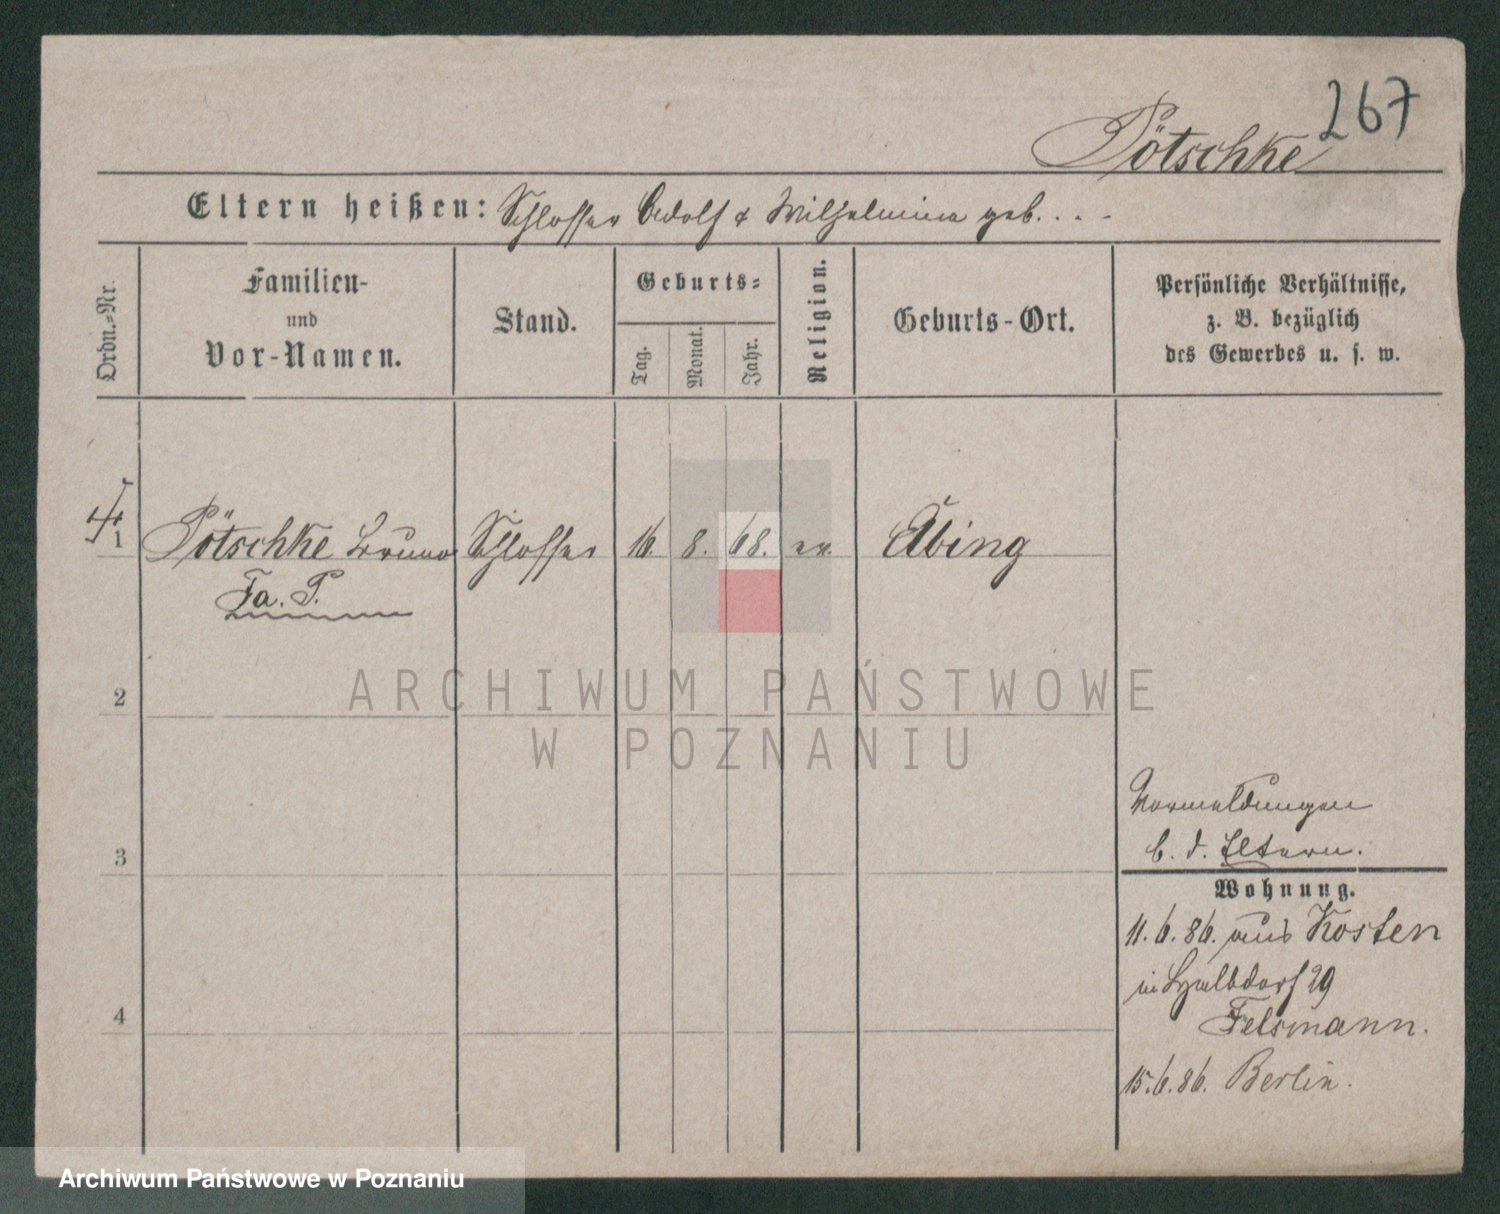 267
Pötschke
Eltern heißen: Schlosser Adolf & Wilhelmine geb. . . -
Ordn.=Nr.
Familien-
und
Vor-Namen.
Stand.
Geburts=
Tag.
Monat.
Jahr.
Religion.
Geburts-Ort.
Persönliche Verhältnisse,
z. B. bezüglich
des Gewerbes u. s. w.
1 Pötschke Bruno Schlosser 16. 8. 68. ev. Elbing
Fa. P.
2
ARCHIWUM PAŃSTWOWE
W POZNANIU
3
4
Vormeldungen
b. d. Eltern.
Wohnung.
11.6.86. aus Kosten
in 29
Felsmann.
15.6.86. Berlin.
Archiwum Państwowe w Poznaniu